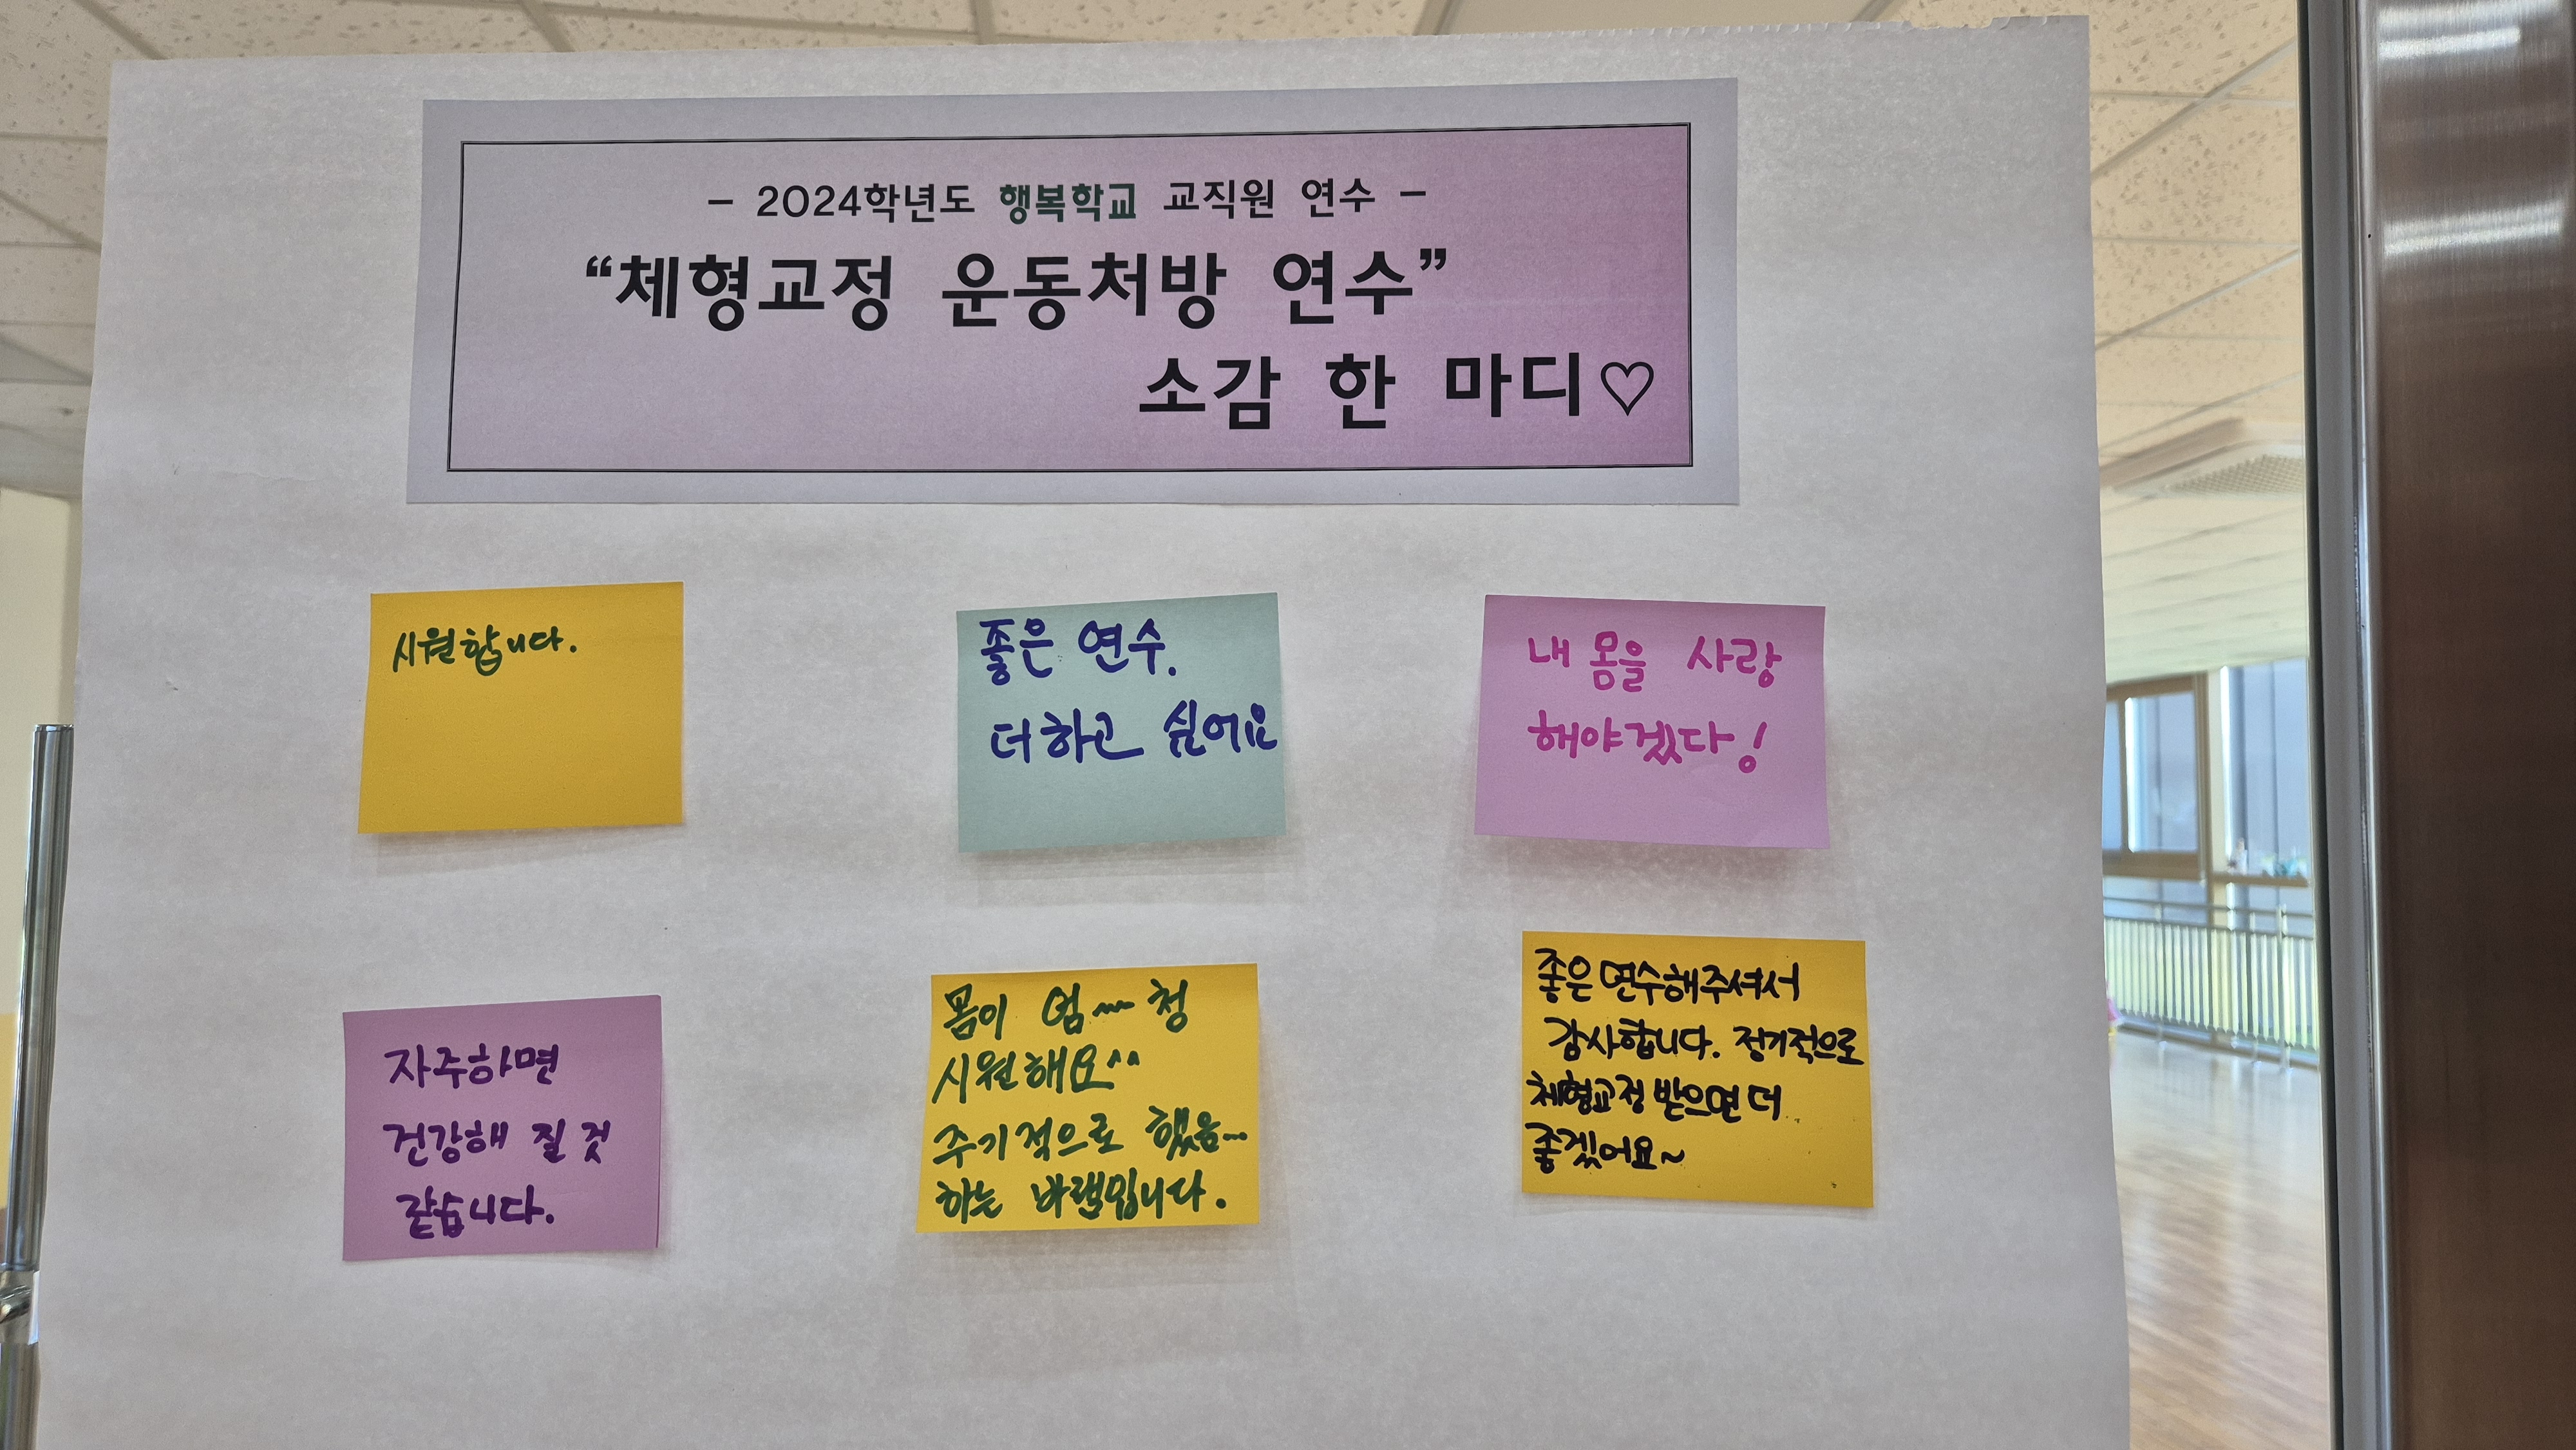 - 2024학년도 행복학교 교직원 연수 -
“체형교정 운동처방 연수”
소감 한 마디♡
시원합니다.
좋은 연수.
더하고 싶어요
내 몸을 사랑
해야겠다!
자주하면
건강해 질 것
같습니다.
몸이 엄~~청
시원해요^^
주기적으로 했음...
하는 바램입니다.
좋은 연수해주셔서
감사합니다. 정기적으로
체형교정 받으면 더
좋겠어요~